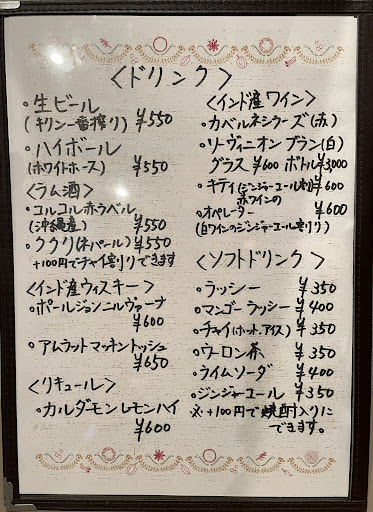 ＜ドリンク＞
・生ビール
(キリン一番搾り) ¥550
・ハイボール
(ホワイトホース) ¥550
＜ラム酒＞
・コルコル赤ラベル
(沖縄産) ¥550
・ククリ(ネパール) ¥550
+100円でチャイ割りできます
＜インド産ウィスキー＞
・ポールジョンニルヴァーナ
¥600
・アムラットマッキントッシュ
¥650
＜リキュール＞
・カルダモンレモンハイ
¥600
＜インド産ワイン＞
・カベルネシラーズ(赤)
・ソーヴィニオンブラン(白)
グラス ¥600 ボトル ¥3,000
・キティ(ジンジャーエール割り) ¥600
赤ワインの
・オペレーター ¥600
(白ワインのジンジャーエール割り)
＜ソフトドリンク＞
・ラッシー ¥350
・マンゴーラッシー ¥400
・チャイ(ホット.アイス) ¥350
・ウーロン茶 ¥350
・ライムソーダ ¥400
・ジンジャーエール ¥350
※+100円で焼酎入りに
できます。